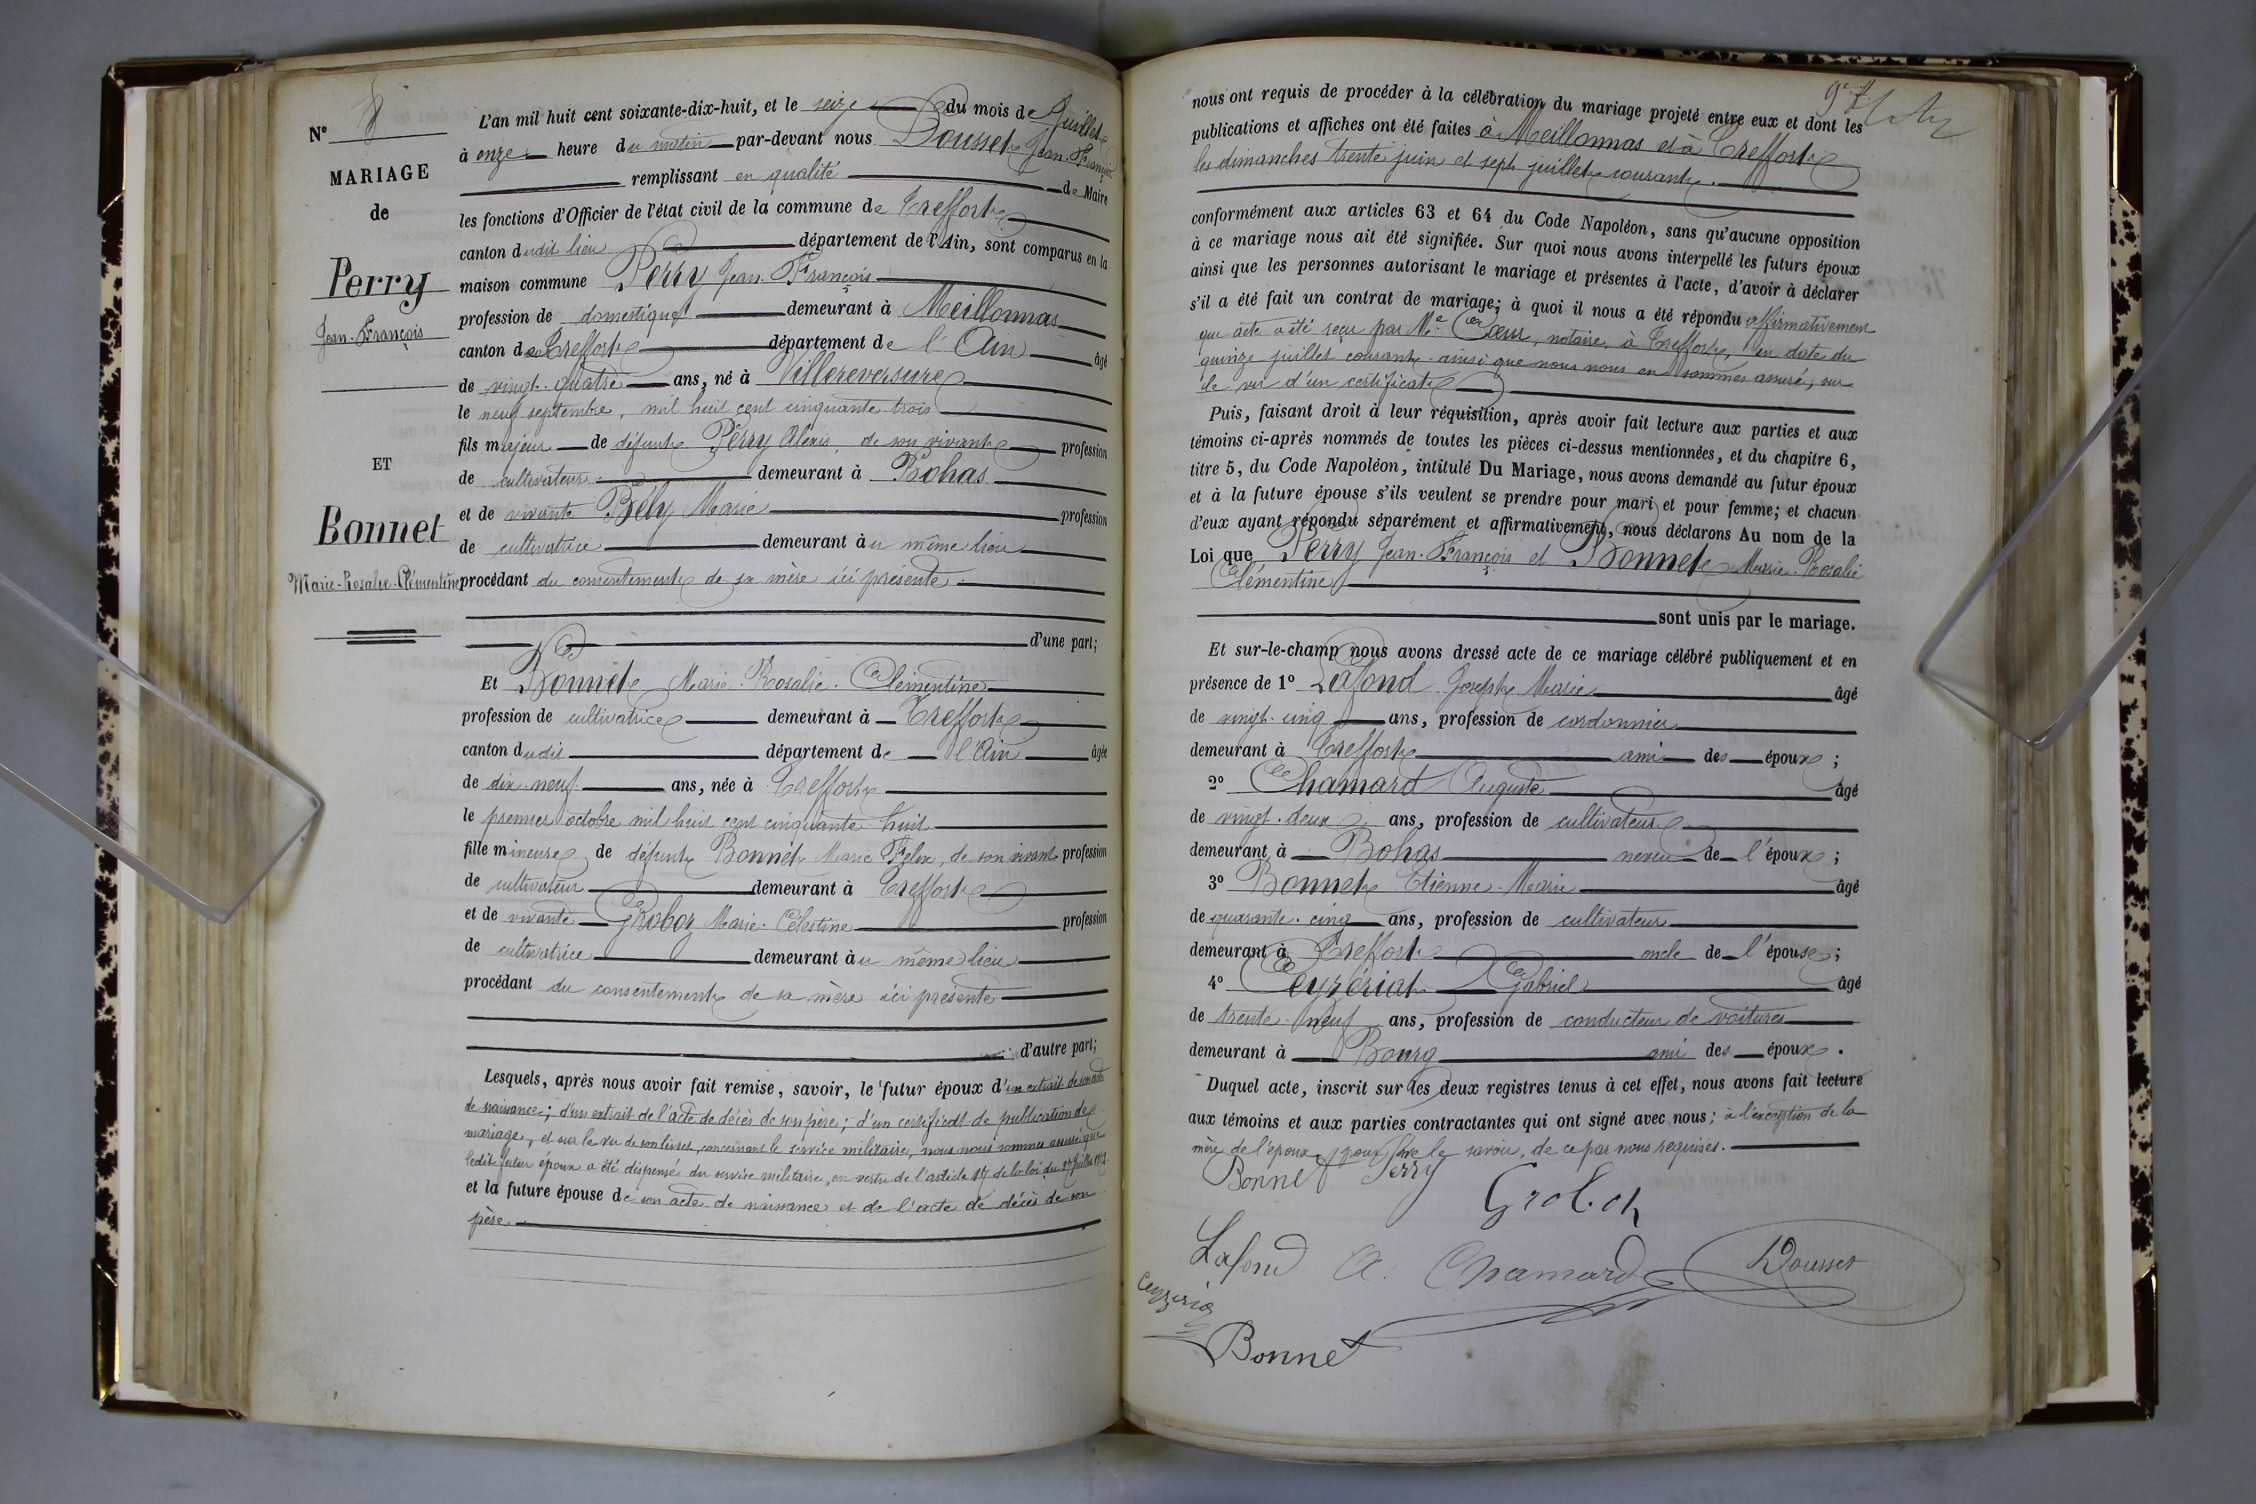 N° 8
MARIAGE
de
Perry
Jean-François
ET
Bonnet
Marie-Rosalie-Clémentine
L'an mil huit cent soixante-dix-huit, et le seize du mois de Juillet
à onze heure du matin par-devant nous Dousset Jean-François
remplissant en qualité de Maire
les fonctions d'Officier de l'état civil de la commune de Treffort
canton dudit lieu département de l'Ain, sont comparus en la
maison commune Perry Jean-François
profession de domestique demeurant à Meillonnas
canton de Treffort département de l'Ain âgé
de vingt-quatre ans, né à Villereversure
le neuf septembre, mil huit cent cinquante-trois
fils majeur de défunt Perry Alexis de son vivant profession
de cultivateur demeurant à Bohas
et de vivante Bély Marie profession
de cultivatrice demeurant au même lieu
procédant du consentement de sa mère ici présente
d'une part;
Et Bonnet Marie-Rosalie-Clémentine
profession de cultivatrice demeurant à Treffort
canton dudit département de l'Ain âgée
de dix-neuf ans, née à Treffort
le premier octobre mil huit cent cinquante-huit
fille mineure de défunt Bonnet Marie Félix, de son vivant profession
de cultivateur demeurant à Treffort
et de vivante Marie-Célestine profession
de cultivatrice demeurant au même lieu
procédant du consentement de sa mère ici présente
d'autre part;
Lesquels, après nous avoir fait remise, savoir, le futur époux d'un extrait de son acte
de naissance; d'un extrait de l'acte de décès de son père; d'un certificat de publication de
mariage, et sur le vu de son livret, concernant le service militaire, nous nous sommes assuré que
ledit futur époux a été dispensé du service militaire, en vertu de l'article 17 de la loi du 27 Juillet 1872
et la future épouse de son acte de naissance et de l'acte de décès de son
père.
nous ont requis de procéder à la célébration du mariage projeté entre eux et dont les
publications et affiches ont été faites à Meillonnas et à Treffort
les dimanches trente juin et sept juillet courant.
conformément aux articles 63 et 64 du Code Napoléon, sans qu'aucune opposition
à ce mariage nous ait été signifiée. Sur quoi nous avons interpellé les futurs époux
ainsi que les personnes autorisant le mariage et présentes à l'acte, d'avoir à déclarer
s'il a été fait un contrat de mariage; à quoi il nous a été répondu affirmativement
que acte a été reçu par Me Cœur, notaire, à Treffort, en date du
quinze juillet courant ainsi que nous nous en sommes assuré, sur
le vu d'un certificat
Puis, faisant droit à leur réquisition, après avoir fait lecture aux parties et aux
témoins ci-après nommés de toutes les pièces ci-dessus mentionnées, et du chapitre 6,
titre 5, du Code Napoléon, intitulé Du Mariage, nous avons demandé au futur époux
et à la future épouse s'ils veulent se prendre pour mari et pour femme; et chacun
d'eux ayant répondu séparément et affirmativement, nous déclarons Au nom de la
Loi que Perry Jean-François et Bonnet Marie-Rosalie
Clémentine
sont unis par le mariage.
Et sur-le-champ nous avons dressé acte de ce mariage célébré publiquement et en
présence de 1° Lafond Joseph Marie âgé
de vingt-cinq ans, profession de cordonnier
demeurant à Treffort ami des époux;
2° Chamard Auguste âgé
de vingt-deux ans, profession de cultivateur
demeurant à Bohas neveu de l'époux;
3° Bonnet Etienne-Marie âgé
de quarante-cinq ans, profession de cultivateur
demeurant à Treffort oncle de l'épouse;
4° Ceyzériat Gabriel âgé
de trente-neuf ans, profession de conducteur de voitures
demeurant à Bourg ami des époux.
Duquel acte, inscrit sur les deux registres tenus à cet effet, nous avons fait lecture
aux témoins et aux parties contractantes qui ont signé avec nous; à l'exception de la
mère de l'époux, pour ne le savoir, de ce par nous requises.
Bonnet Perry
Lafond A. Chamard Dousset
Bonnet